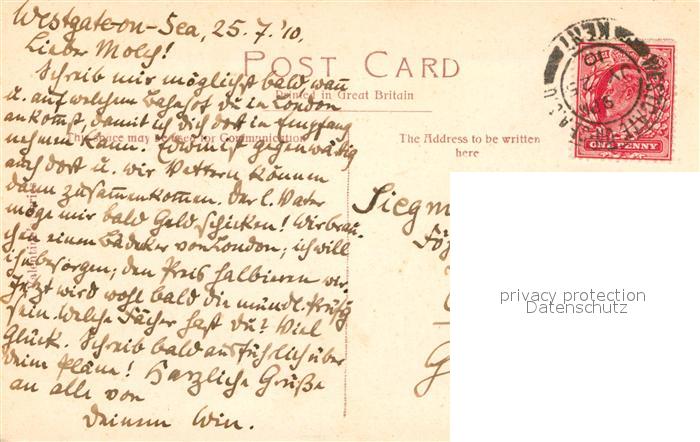 Westgate-on-Sea, 25.7.'10.
Lieber Molch!
POST CARD
Printed in Great Britain
Schreib mir möglichst bald wann
u. auf welchem Bahnhof du in London
ankomst, damit ich dich dort in Empfang
nehmen kann. Edwin ist gegenwärtig
This space may be used for Communication
The Address to be written
here
auch dort u. wir Vettern können
dann zusammenkommen. Der l. Vater
möge mir bald Geld schicken! Wir brau-
chen einen Bädeker von London; ich will
ihn besorgen; den Preis halbieren wir.
Jetzt wird wohl bald die mündl. Prüfg
sein. Welche Fächer hast du? Viel
Glück. Schreib bald ausführlich über
deine Pläne! Herzliche Grüße
an alle von
deinem Win.
Siegm
G
WESTGATE-ON-SEA
KENT
5 PM
JY 25
10
ONE PENNY
privacy protection
Datenschutz